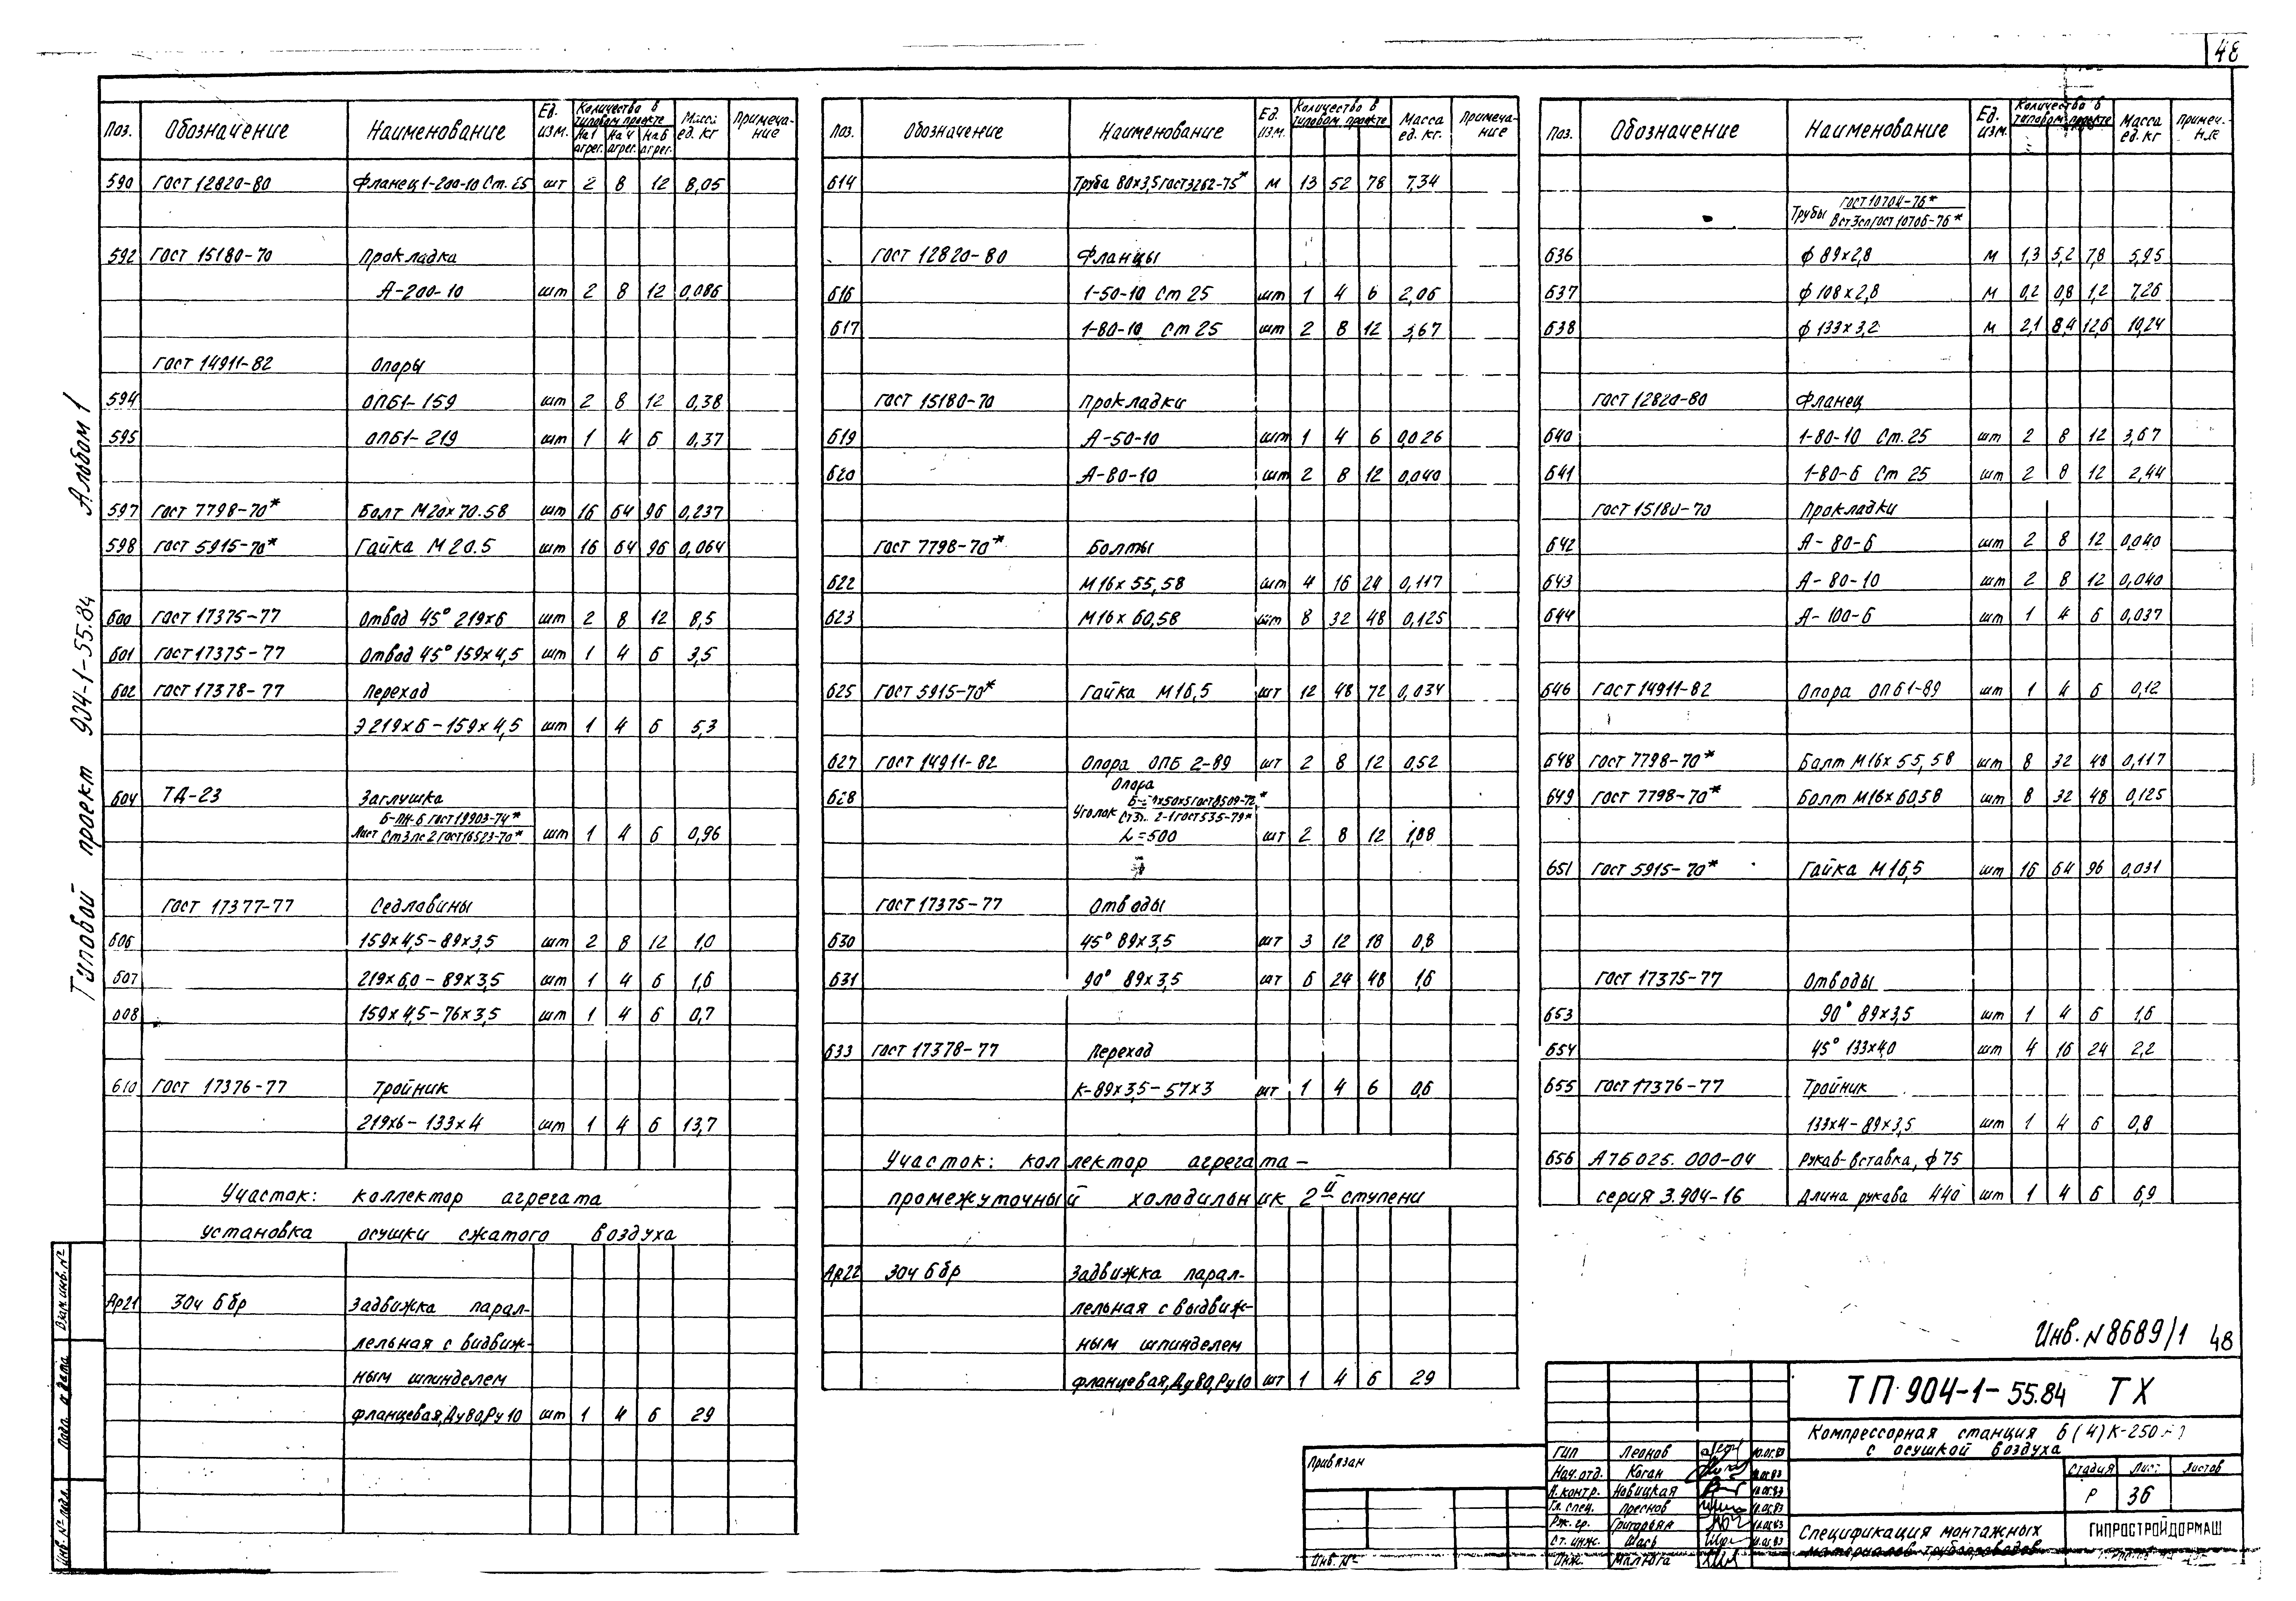 48
Типовой проект 904-1-55.84 Альбом 1
Поз. Обозначение Наименование Ед. изм. Количество в типовом проекте Масса ед. кг Примеча-ние
На 1 агрег. На 4 агрег. На 6 агрег.
590 ГОСТ 12820-80 Фланец 1-200-10 Ст. 25 шт 2 8 12 8,05
592 ГОСТ 15180-70 Прокладка
А-200-10 шт 2 8 12 0,086
ГОСТ 14911-82 Опоры
594 ОПБ1-159 шт 2 8 12 0,38
595 ОПБ1-219 шт 1 4 6 0,37
597 ГОСТ 7798-70* Болт М20х70.58 шт 16 64 96 0,237
598 ГОСТ 5915-70* Гайка М20.5 шт 16 64 96 0,064
600 ГОСТ 17375-77 Отвод 45° 219х6 шт 2 8 12 8,5
601 ГОСТ 17375-77 Отвод 45° 159х4,5 шт 1 4 6 3,5
602 ГОСТ 17378-77 Переход
Э 219х6-159х4,5 шт 1 4 6 5,3
604 ТД-23 Заглушка
Б-ПН-6 ГОСТ 19903-74*
Лист Ст3пс2 ГОСТ 16523-70* шт 1 4 6 0,96
ГОСТ 17377-77 Седловины
606 159х4,5-89х3,5 шт 2 8 12 1,0
607 219х6,0-89х3,5 шт 1 4 6 1,6
608 159х4,5-76х3,5 шт 1 4 6 0,7
610 ГОСТ 17376-77 Тройник
219х6-133х4 шт 1 4 6 13,7
Участок: коллектор агрегата
установка осушки сжатого воздуха
Ар21 30ч6бр Задвижка парал-
лельная с видвиж-
ным шпинделем
фланцевая, Ду80, Ру10 шт 1 4 6 29
Поз. Обозначение Наименование Ед. изм. Количество в типовом проекте Масса ед. кг. Примеча-ние
614 Труба 80х3,5 ГОСТ 3262-75* м 13 52 78 7,34
ГОСТ 12820-80 Фланцы
616 1-50-10 Ст 25 шт 1 4 6 2,06
617 1-80-10 Ст 25 шт 2 8 12 3,67
ГОСТ 15180-70 Прокладки
619 А-50-10 шт 1 4 6 0,026
620 А-80-10 шт 2 8 12 0,040
ГОСТ 7798-70* Болты
622 М16х55,58 шт 4 16 24 0,117
623 М16х60,58 шт 8 32 48 0,125
625 ГОСТ 5915-70* Гайка М16,5 шт 12 48 72 0,034
627 ГОСТ 14911-82 Опора ОПБ 2-89 шт 2 8 12 0,52
628 Опора
Уголок ГОСТ 8509-72* 2-1 ГОСТ 535-79*
L=500 шт 2 8 12 1,88
ГОСТ 17375-77 Отводы
630 45° 89х3,5 шт 3 12 18 0,8
631 90° 89х3,5 шт 6 24 48 1,6
633 ГОСТ 17378-77 Переход
К-89х3,5-57х3 шт 1 4 6 0,6
Участок: коллектор агрегата-
промежуточный холодильник 2й ступени
Ар22 30ч6бр Задвижка парал-
лельная с выдвиж-
ным шпинделем
фланцевая, Ду80, Ру10 шт 1 4 6 29
Поз. Обозначение Наименование Ед. изм. Количество в типовом проекте Масса ед. кг Примеч.-ние
Трубы ГОСТ 10704-76*
ВСт3сп ГОСТ 10706-76*
636 ф 89х2,8 м 1,3 5,2 7,8 5,95
637 ф 108х2,8 м 0,2 0,8 1,2 7,26
638 ф 133х3,2 м 2,1 8,4 12,6 10,24
ГОСТ 12820-80 Фланец
640 1-80-10 Ст. 25 шт 2 8 12 3,67
641 1-80-6 Ст 25 шт 2 8 12 2,44
ГОСТ 15180-70 Прокладки
642 А-80-6 шт 2 8 12 0,040
643 А-80-10 шт 2 8 12 0,040
644 А-100-6 шт 1 4 6 0,037
646 ГОСТ 14911-82 Опора ОПБ1-89 шт 1 4 6 0,12
648 ГОСТ 7798-70* Болт М16х55,58 шт 8 32 48 0,117
649 ГОСТ 7798-70* Болт М16х60,58 шт 8 32 48 0,125
651 ГОСТ 5915-70* Гайка М16,5 шт 16 64 96 0,031
ГОСТ 17375-77 Отводы
653 90° 89х3,5 шт 1 4 6 1,6
654 45° 133х4,0 шт 4 16 24 2,2
655 ГОСТ 17376-77 Тройник
133х4-89х3,5 шт 1 4 6 0,8
656 А7Б025.000-04 Рукав-вставка, ф 75
серия 3.904-16 Длина рукава 440 шт 1 4 6 6,9
Инв. N 8689/1 48
ТП 904-1-55.84 ТХ
Компрессорная станция 6(4)К-250
с осушкой воздуха
Стадия Лист Листов
Р 36
Спецификация монтажных
материалов трубопроводов
ГИПРОСТРОЙДОРМАШ
ГИП Леонов
Нач. отд. Коган
Н. контр. Новицкая
Гл. спец. Преснов
Рук. гр. Григорьян
Ст. инж. Шась
Инж. Малюга
Привязан
Инв. №
Взам. инв. №
Подп. и дата
Инв. № подл.